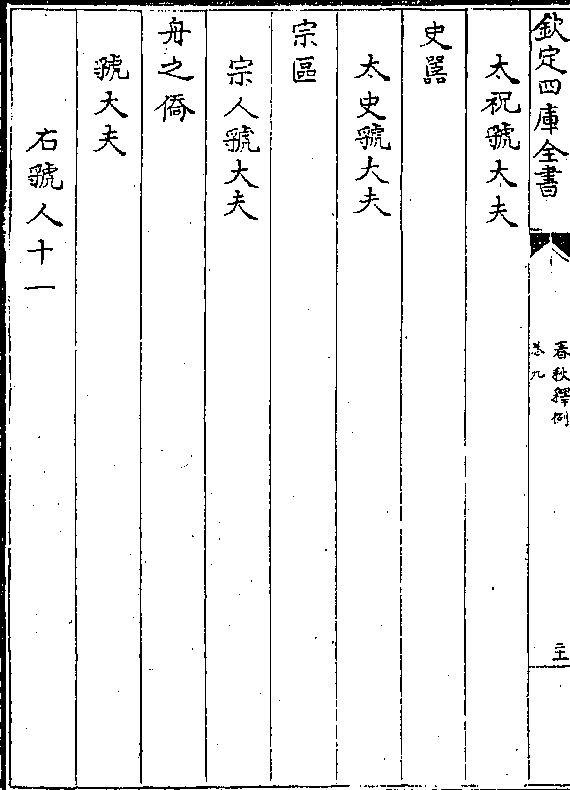 欽定四庫全書
春秋釋例
卷九
太祝虢大夫
史嚚
太史虢大夫
宗區
宗人虢大夫
舟之僑
虢大夫
右虢人十一